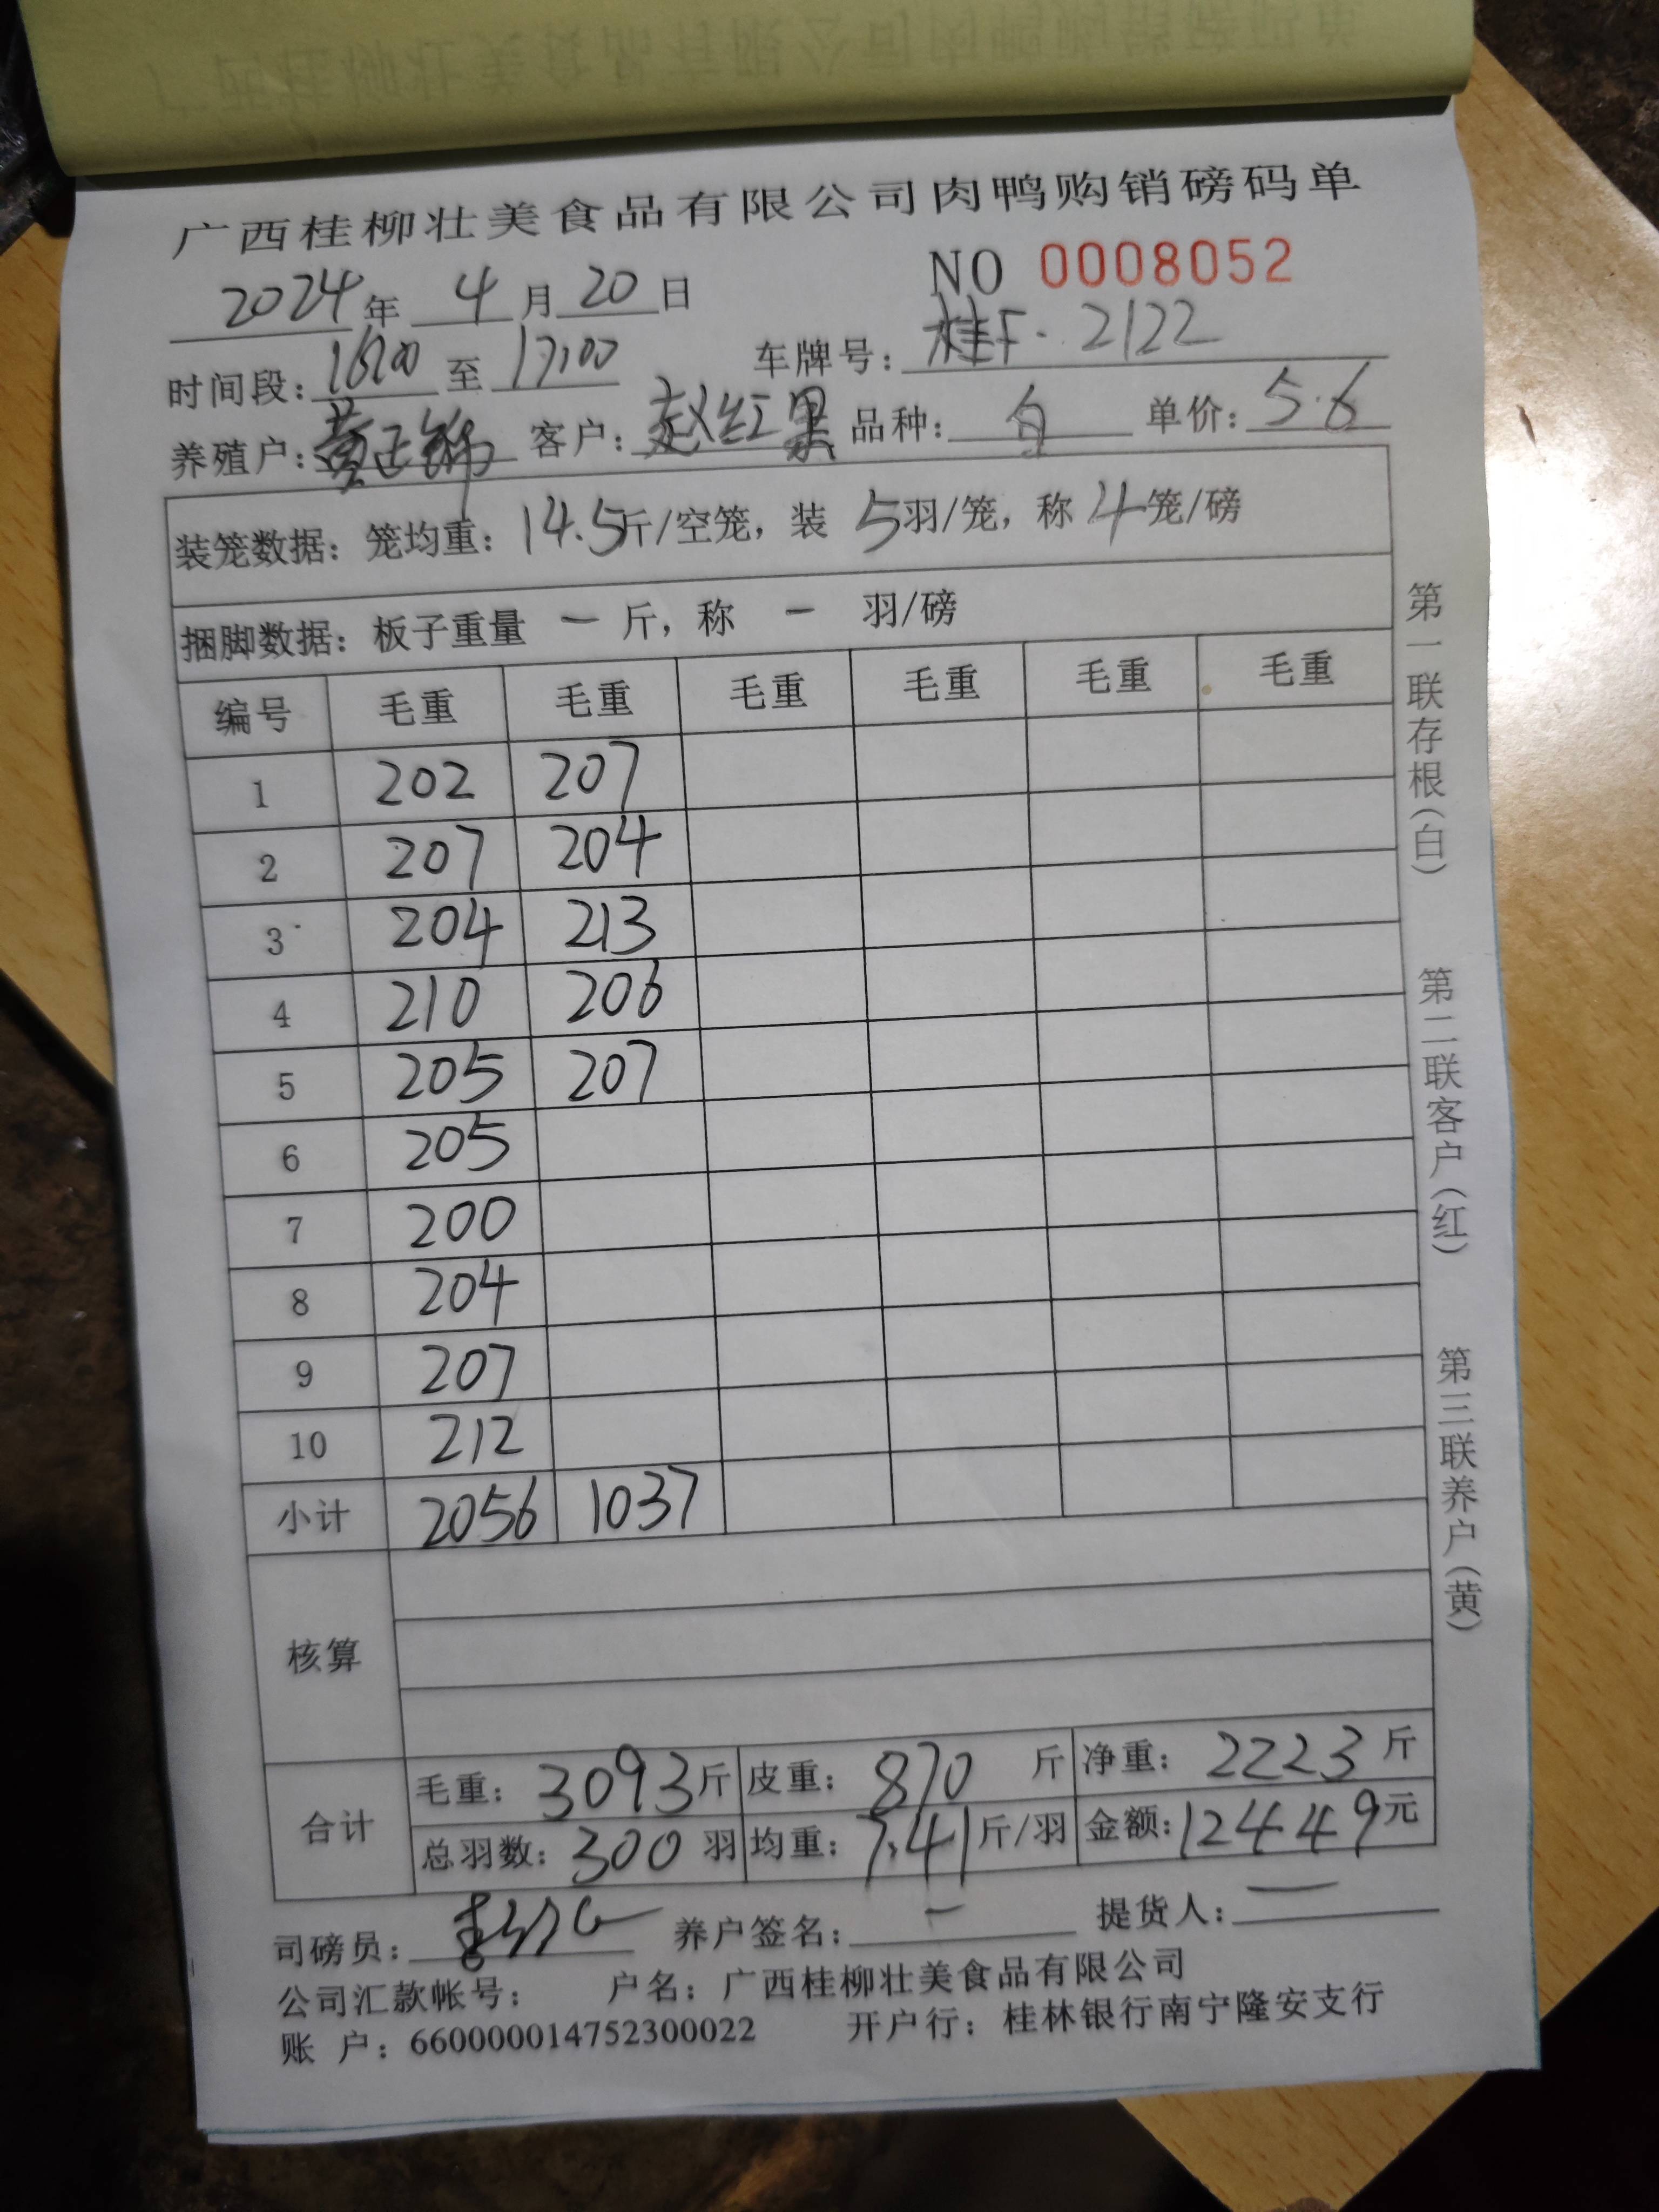 广西桂柳壮美食品有限公司肉鸭购销磅码单
2024年 4月20日 NO 0008052
时间段: 16:00 至 17:00 车牌号: 桂F·2122
养殖户: 黄正锦 客户: 赵红果 品种: 白 单价: 5.6
装笼数据: 笼均重: 14.5斤/空笼, 装 5羽/笼, 称 4笼/磅
捆脚数据: 板子重量 一 斤, 称 一 羽/磅
编号 毛重 毛重 毛重 毛重 毛重 毛重
1 202 207
2 207 204
3 204 213
4 210 206
5 205 207
6 205
7 200
8 204
9 207
10 212
小计 2056 1037
核算
合计 毛重: 3093斤 皮重: 870 斤 净重: 2223斤
总羽数: 300羽 均重: 7.41斤/羽 金额: 12449元
司磅员: 养户签名: 一 提货人: 一
公司汇款帐号: 户名: 广西桂柳壮美食品有限公司
账 户: 660000014752300022 开户行: 桂林银行南宁隆安支行
第一联存根(白)
第二联客户(红)
第三联养户(黄)